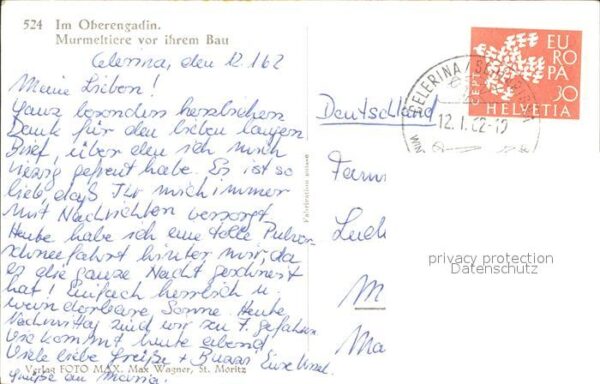 524 Im Oberengadin.
Murmeltiere vor ihrem Bau
Celerina, den 12.1.62
Meine Lieben!
Ganz besonders herzlichen
Dank für den lieben langen
Brief, über den ich mich
riesig gefreut habe. Es ist so
lieb, daß Ihr mich immer
mit Nachrichten versorgt.
Heute habe ich eine tolle Pulver-
schneefahrt hinter mir, da
es die ganze Nacht geschneit
hat! Einfach herrlich u.
wunderbare Sonne. Heute
Nachmittag sind wir zu 7. gefahren
kommt heute abend
Viele liebe Grüße + Bussi Eure
Grüße an
Verlag FOTO MAX. Max Wagner, St. Moritz
Fabrication suisse
Deutschland
Fam
M
Ma
CELERINA
12.1.62-
WIN
SEPT
EUROPA
30
HELVETIA
privacy protection
Datenschutz